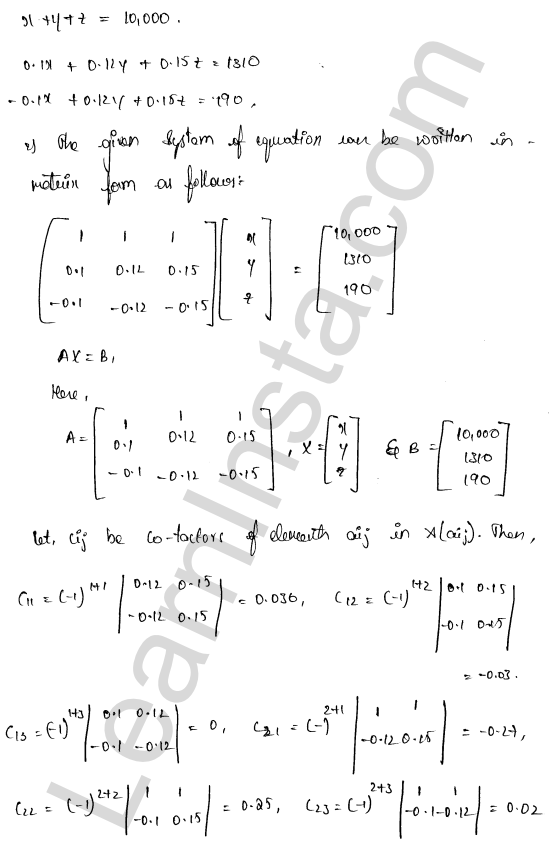 x + y + z = 10,000.
0.1x + 0.12y + 0.15z = 1310
-0.1x + 0.12y + 0.15z = 190,
The given system of equation can be written in -
matrix form as follows:
1 1 1
0.1 0.12 0.15
-0.1 -0.12 -0.15
x
y
z
=
10,000
1310
190
AX = B,
Here,
A = 1 1 1
0.1 0.12 0.15
-0.1 -0.12 -0.15
, X = x
y
z
& B = 10,000
1310
190
Let, Cij be co-factors of elements aij in A(aij). Then,
C11 = (-1)^1+1 | 0.12 0.15
-0.12 0.15 | = 0.036, C12 = (-1)^1+2 | 0.1 0.15
-0.1 0.15 |
= -0.03.
C13 = (-1)^1+3 | 0.1 0.12
-0.1 -0.12 | = 0, C21 = (-)^2+1 | 1 1
-0.12 0.15 | = -0.27,
C22 = (-1)^2+2 | 1 1
-0.1 0.15 | = 0.25, C23 = (-1)^2+3 | 1 1
-0.1 -0.12 | = 0.02
LearnInsta.com